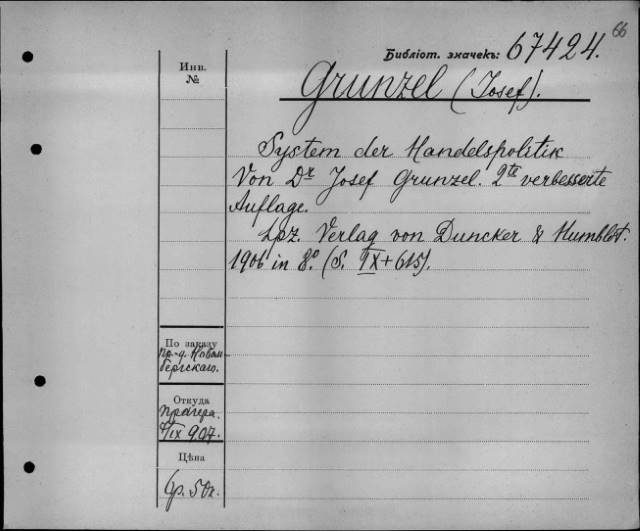 66
Библіот. значекъ: 67424.
Инв.
№
Grunzel (Josef).
System der Handelspolitik
Von Dr Josef Grunzel. 2te verbesserte
Auflage.
Lpz. Verlag von Duncker & Humblot.
1906 in 8.º (S. IX+615).
По заказу
Откуда
Прагера.
/IX 907.
Цѣна
6р. 50к.